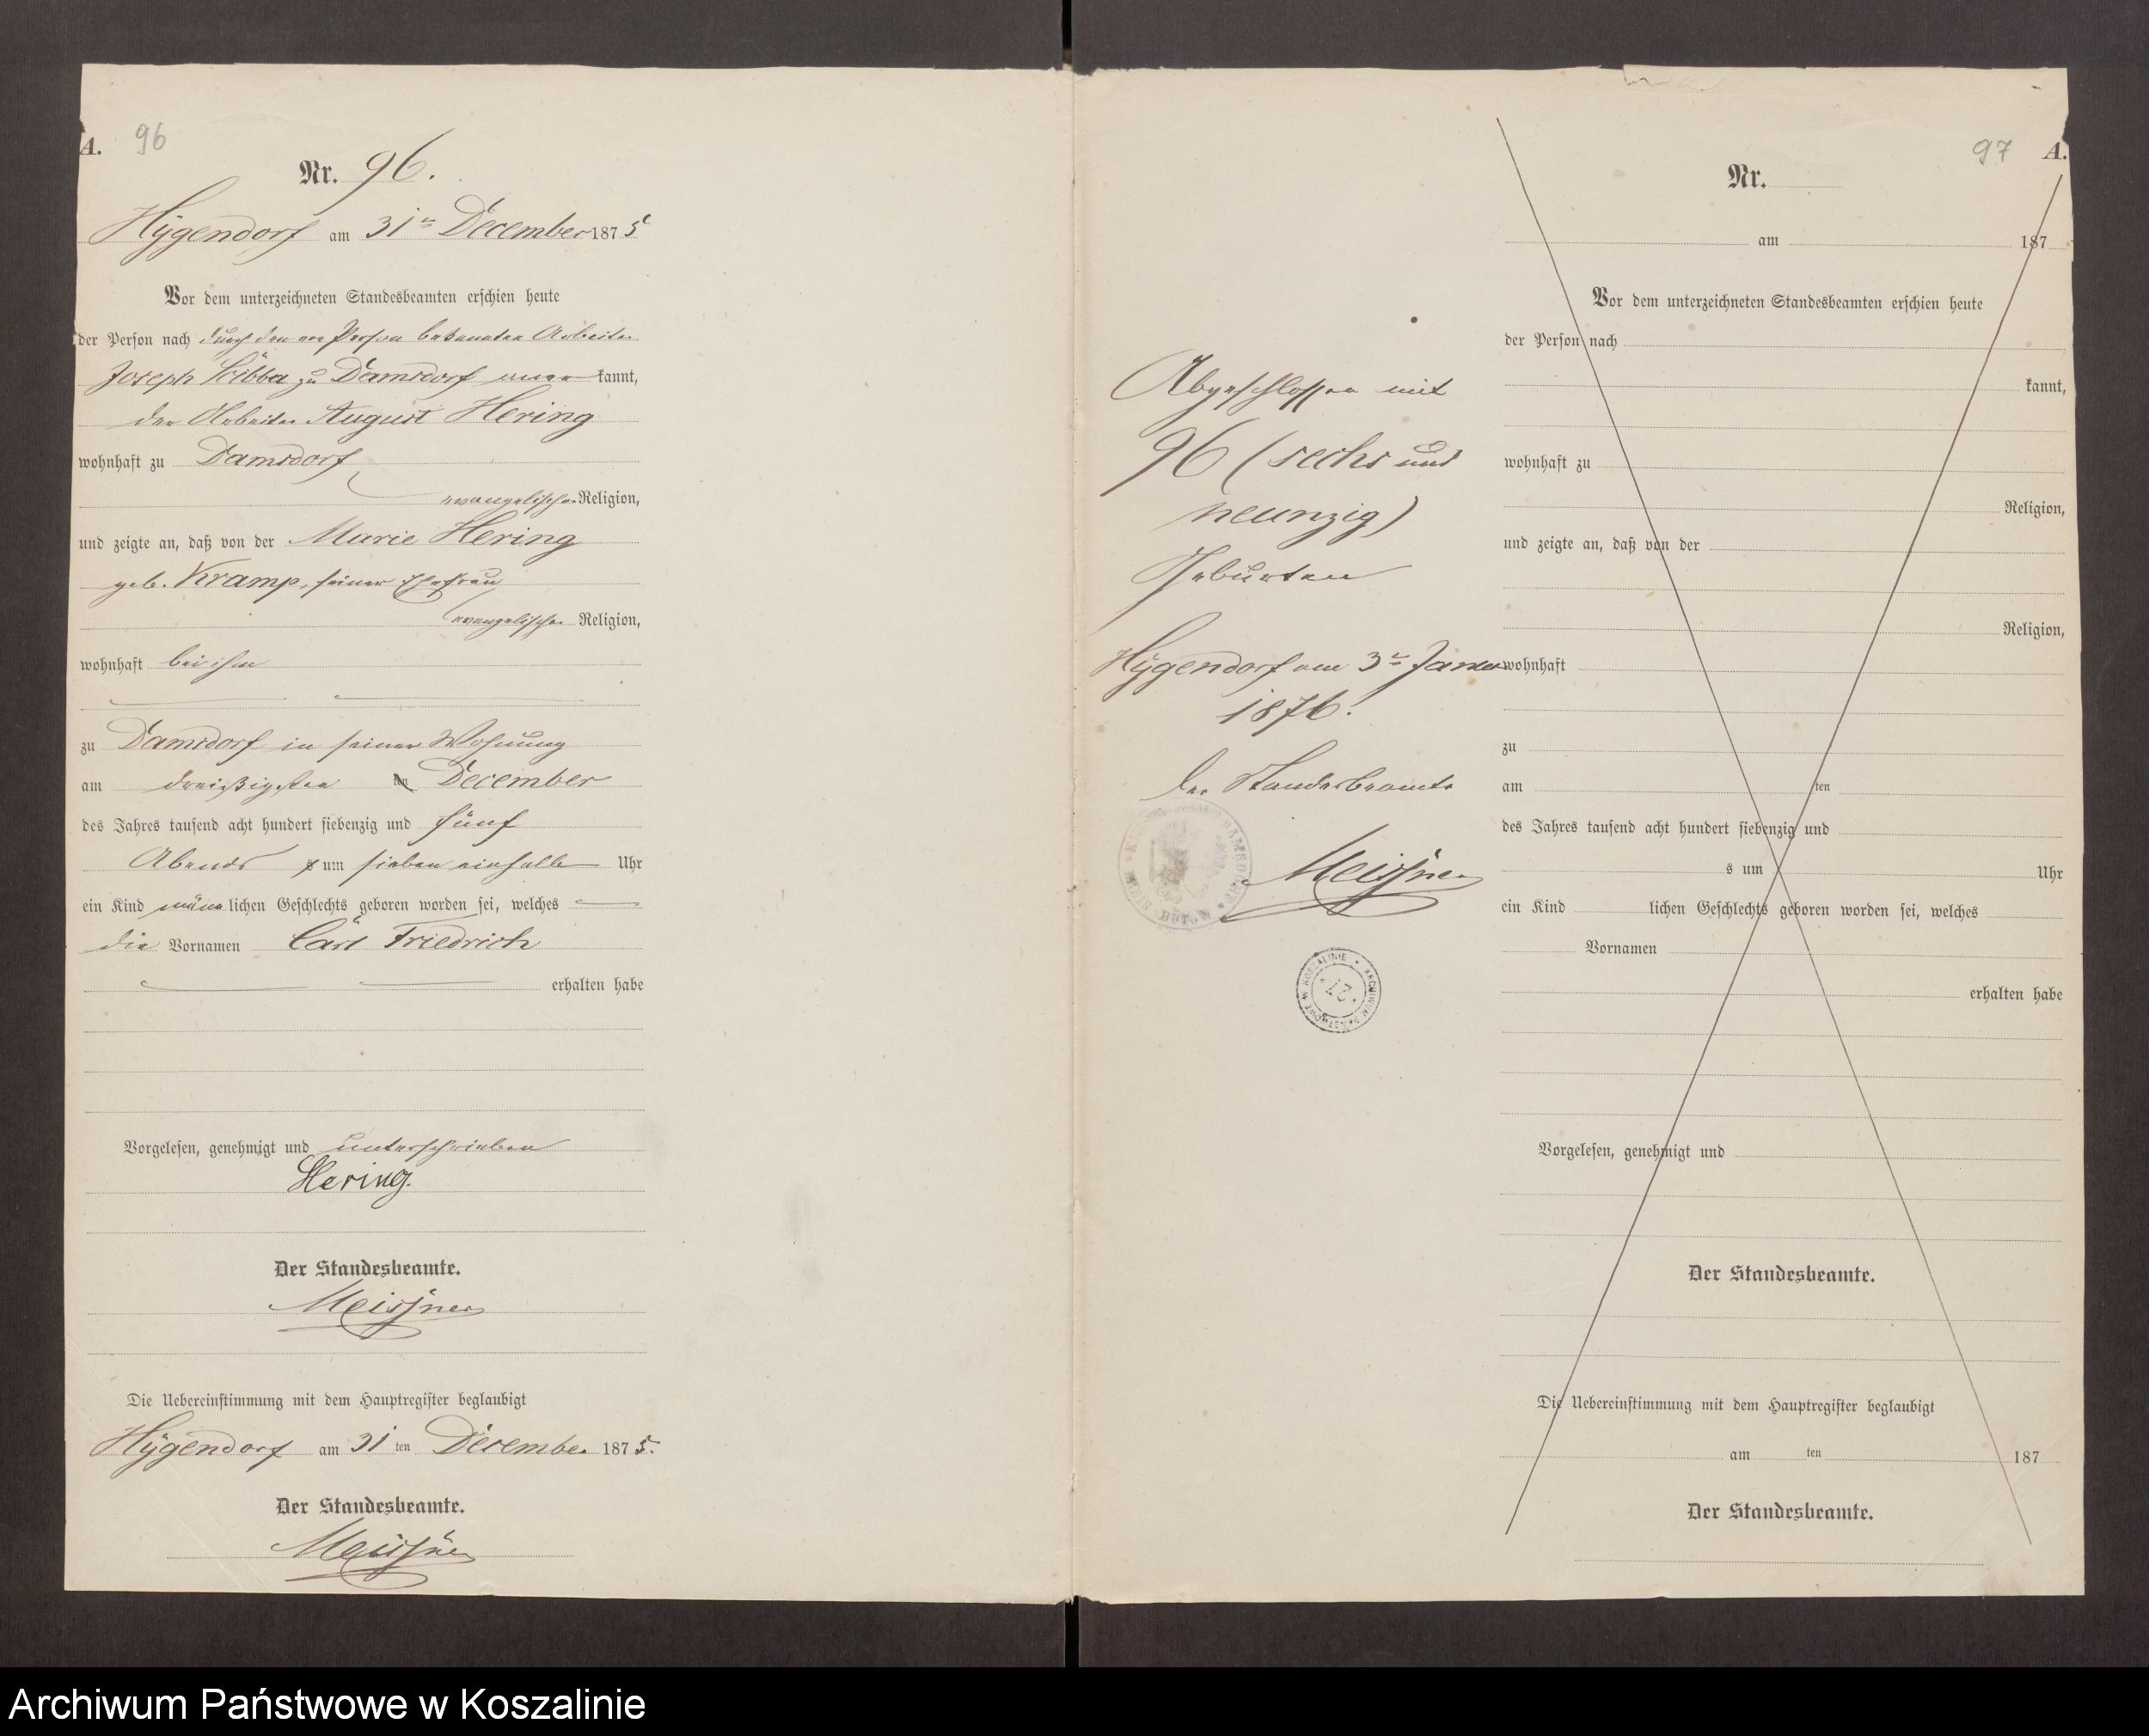 A. 96
Nr. 96.
Hygendorf am 31ten December 1875
Vor dem unterzeichneten Standesbeamten erschien heute
der Person nach durch den von Person bekannten Arbeiter
Joseph zu Damsdorf aner kannt,
der Arbeiter August Hering
wohnhaft zu Damsdorf
evangelischer Religion,
und zeigte an, daß von der Marie Hering
geb. Kramp, seiner Ehefrau
evangelischer Religion,
wohnhaft bei ihm
zu Damsdorf in seiner Wohnung
am dreißigsten ten December
des Jahres tausend acht hundert siebenzig und fünf
Abends s um sieben einhalb Uhr
ein Kind männ lichen Geschlechts geboren worden sei, welches
die Vornamen Carl Friedrich
erhalten habe
Vorgelesen, genehmigt und unterschrieben
Hering.
Der Standesbeamte.
Meissner
Die Uebereinstimmung mit dem Hauptregister beglaubigt
Hygendorf am 31 ten December 1875.
Der Standesbeamte.
Meissner
Abgeschlossen mit
96 (sechs und
neunzig)
Geburten
Hygendorf am 3ten Januar
1876.
Der Standesbeamte
Meissner
ARCHIWUM PAŃSTWOWE W KOSZALINIE
27
97 A.
Nr.
am 187
Vor dem unterzeichneten Standesbeamten erschien heute
der Person nach
kannt,
wohnhaft zu
Religion,
und zeigte an, daß von der
Religion,
wohnhaft
zu
am ten
des Jahres tausend acht hundert siebenzig und
s um Uhr
ein Kind lichen Geschlechts geboren worden sei, welches
Vornamen
erhalten habe
Vorgelesen, genehmigt und
Der Standesbeamte.
Die Uebereinstimmung mit dem Hauptregister beglaubigt
am ten 187
Der Standesbeamte.
Archiwum Państwowe w Koszalinie